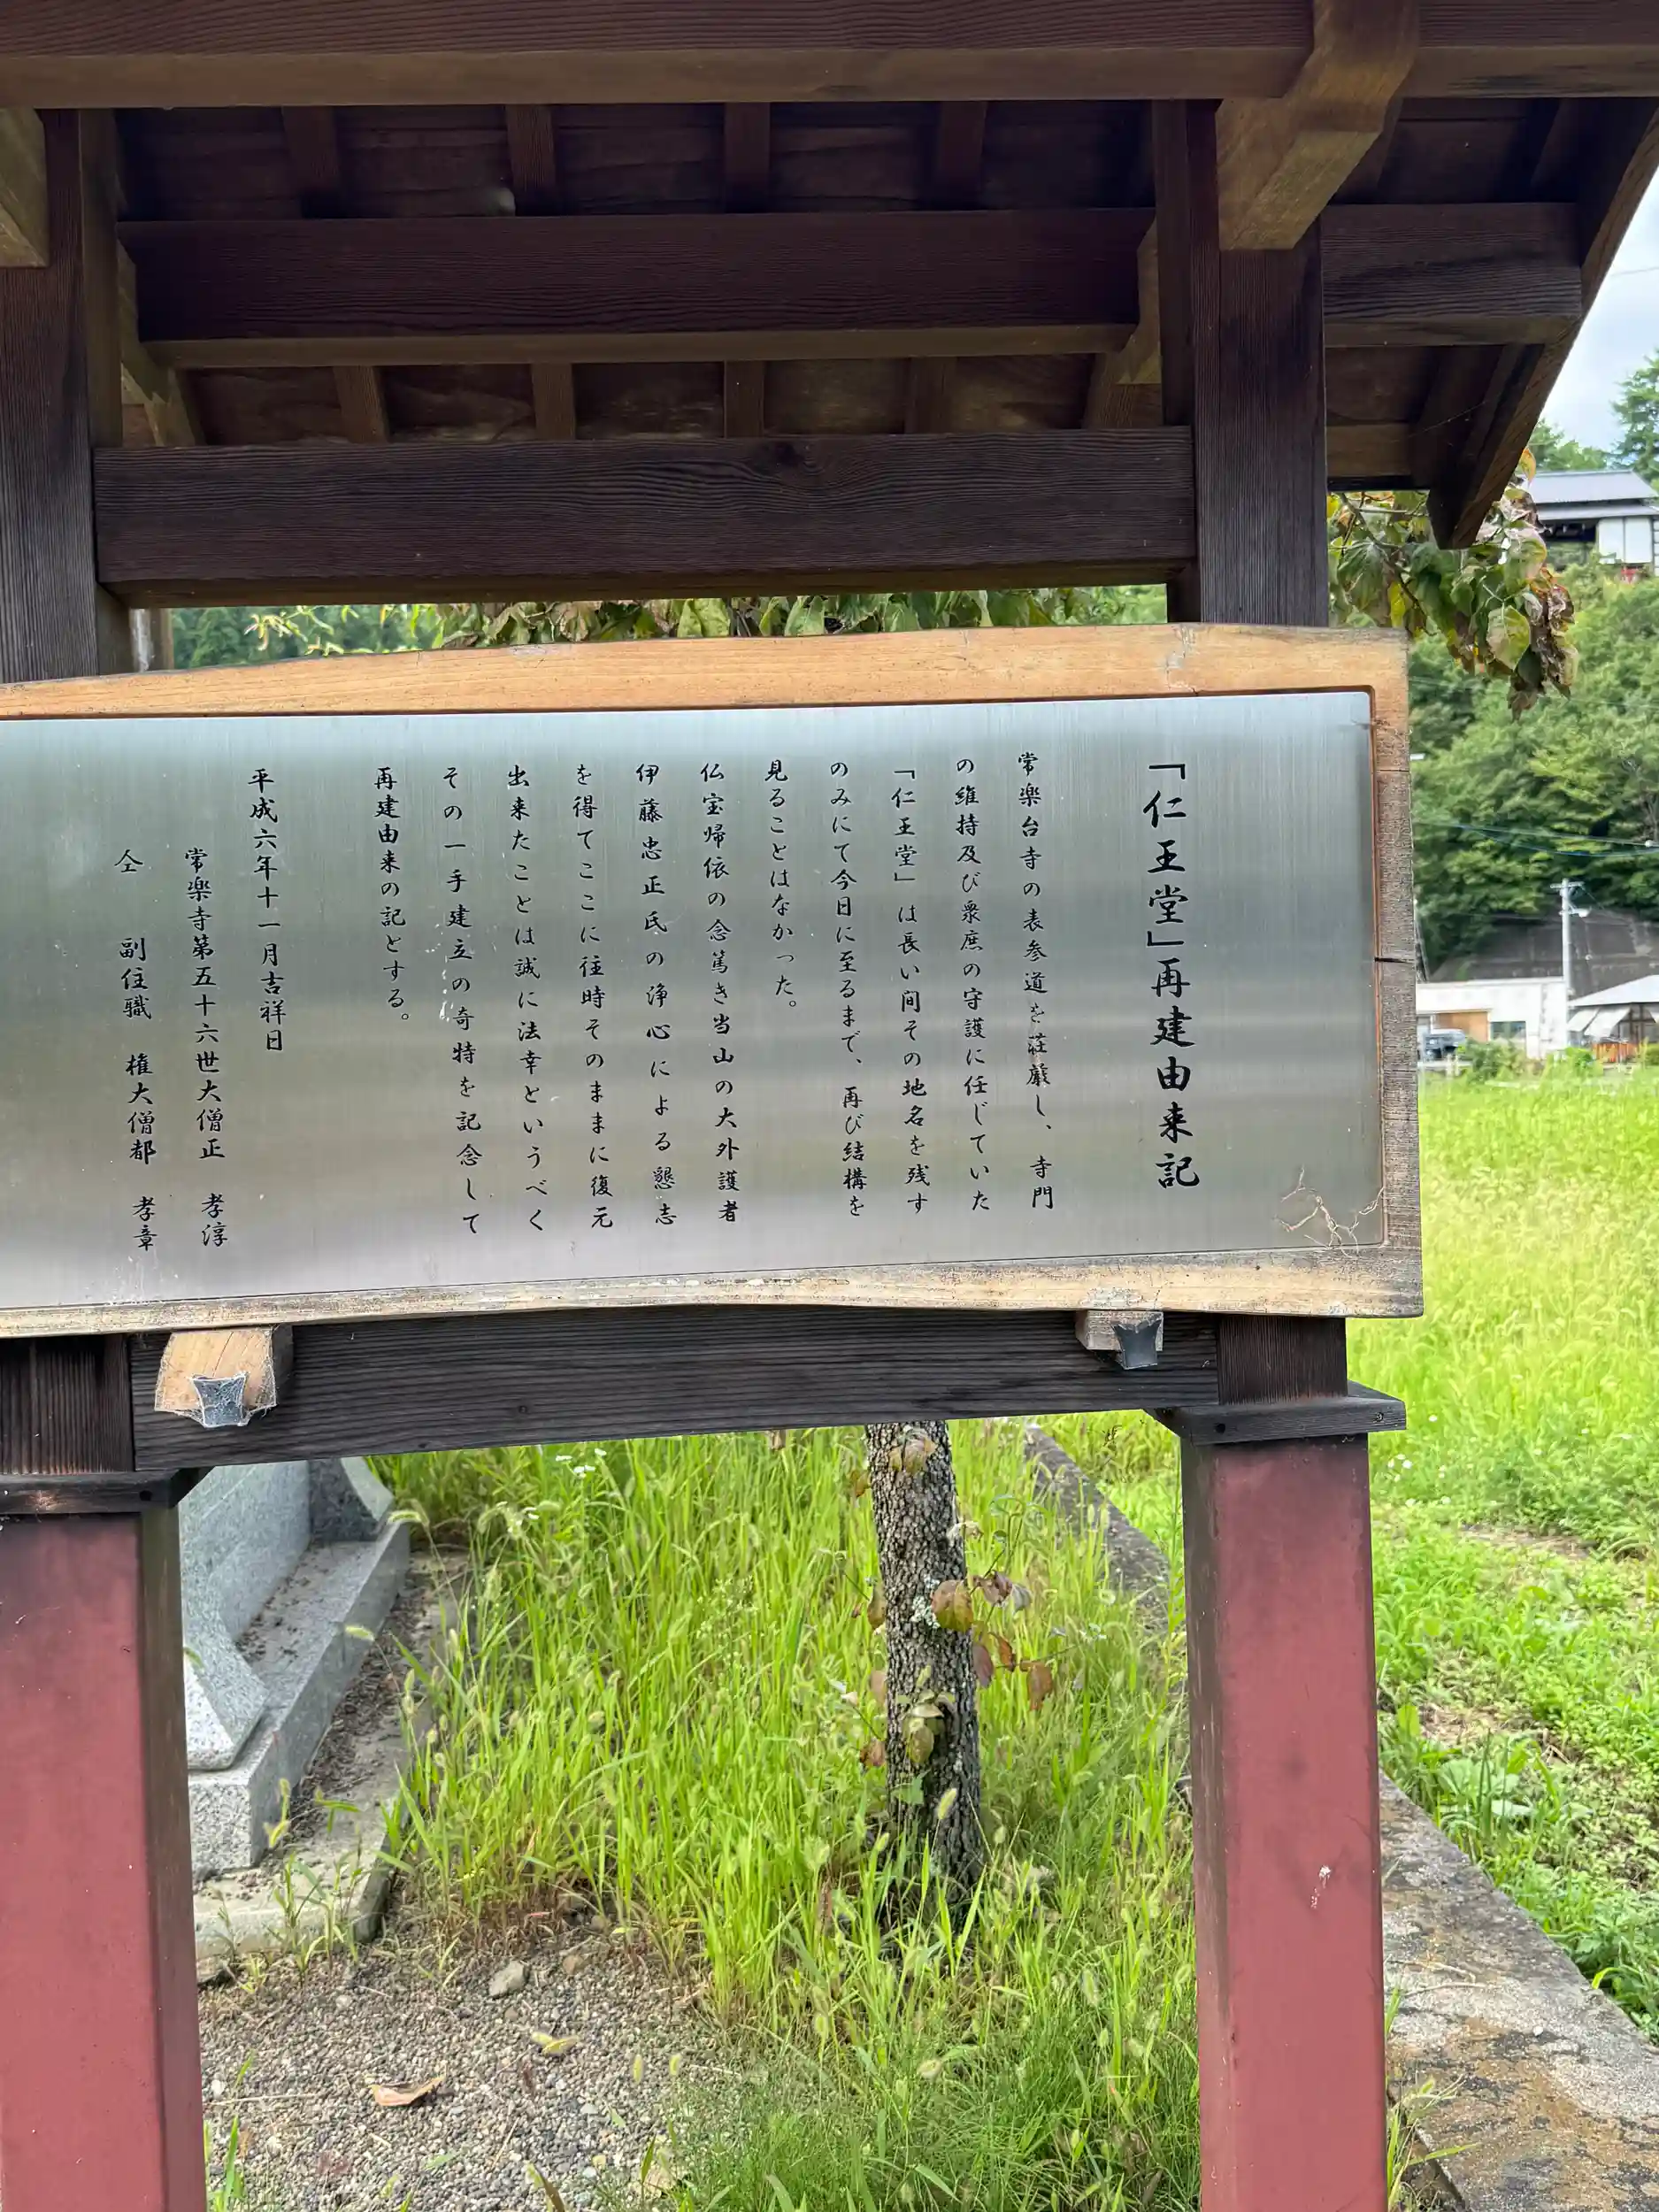 「仁王堂」再建由来記
常楽台寺の表参道を荘厳し、寺門
の維持及び衆庶の守護に任じていた
「仁王堂」は長い間その地名を残す
のみにて今日に至るまで、再び結構を
見ることはなかった。
仏宝帰依の念篤き当山の大外護者
伊藤忠正氏の浄心による懇志
を得てここに往時そのままに復元
出来たことは誠に法幸というべく
その一手建立の奇特を記念して
再建由来の記とする。
平成六年十一月吉祥日
常楽寺第五十六世大僧正 孝淳
仝 副住職 権大僧都 孝章